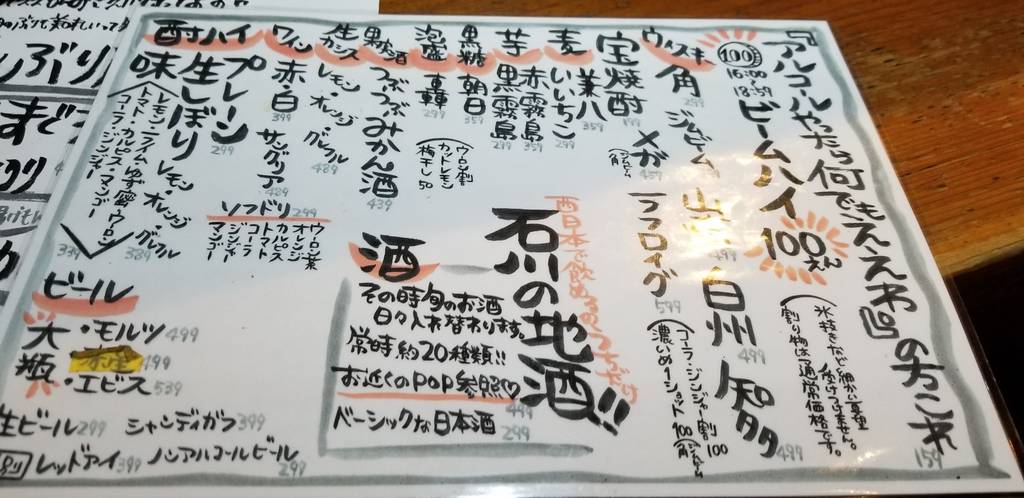 『アルコールやったら何でもええわ』の方これ 159
100 16:00〜18:59 ビームハイ 100えん
氷抜きなど細かい要望
受けつけません。
割り物は通常価格です。
ウィスキー 角 299 ジムビーム 山崎 白州 499 知多 499
メガ 459 フォロイグ 599
(コーラ・ジンジャー割 100
濃いめ1ショット 100
宝焼酎 199 兼八
麦 いいちこ 359
芋 赤霧島 359 黒霧島 299
黒糖 朝日 359
泡盛 轟 299
ウーロン割
カットレモン
梅干し 50
果実酒 つぶつぶみかん酒 439
生ガツン レモン・オレンジ グレフル 489
ワイン 赤・白 399 サングリア 489
酎ハイ プレーン 299
生しぼり レモン オレンジ グレフル 389
味 レモン・ライム・ゆず蜜・ウーロン
トマト・カルピス・マンゴー
コーラ・ジンジャー 339
ソフドリ 299
ウーロン茶
オレンジ
カルピス
トマト
コーラ
ジンジャー
マンゴー
西日本で飲めるのうちだけ
石川の地酒!!
酒
その時旬のお酒
日々入れ替わります。
常時約20種類!!
お近くのPOP参照♡
499
ベーシックな日本酒 299
ビール
大瓶 ・モルツ 499
499
・エビス 539
生ビール 299 シャンディガフ 399
レッドアイ 399 ノンアルコールビール 299